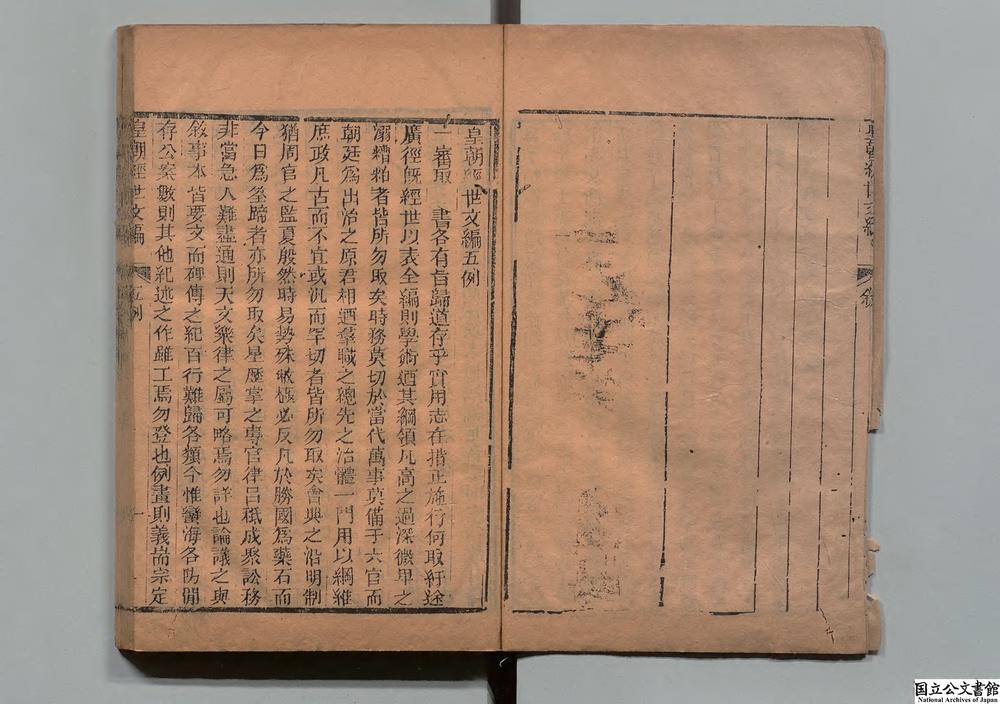 皇朝經世文編
敘
皇朝經世文編五例
一審取　書各有旨歸道存乎實用志在措正施行何取紆途
廣徑既經世以表全編則學術迺其綱領凡高之過深微卑之
溺糟粕者皆所勿取矣時務莫切於當代萬事莫備于六官而
朝廷爲出治之原君相迺羣職之總先之治體一門用以綱維
庶政凡古而不宜或汎而罕切者皆所勿取矣會典之沿明制
猶周官之監夏殷然時易勢殊敝極必反凡於勝國爲藥石而
今日爲筌蹄者亦所勿取矣星歷掌之專官律呂秪成聚訟務
非當急人難盡通則天文樂律之屬可略焉勿詳也論議之與
敘事本皆要文而碑傳之紀百行難歸各類今惟蠻海各防閒
存公案數則其他紀述之作雖工焉勿登也例畫則義耑宗定
皇朝經世文編
五例
一
国立公文書館
National Archives of Japan